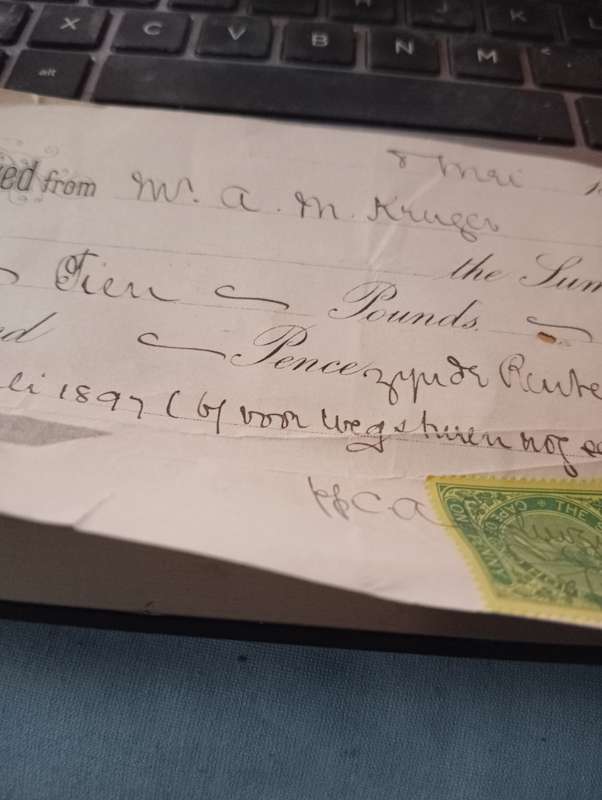 X C V B N M
alt
8 Mei
ed from Mr. A. M. Kruger
the Sum
Tien Pounds
Pence zijnde Rente
li 1897 (6/ voor wegsturen nog
THE
CAPE